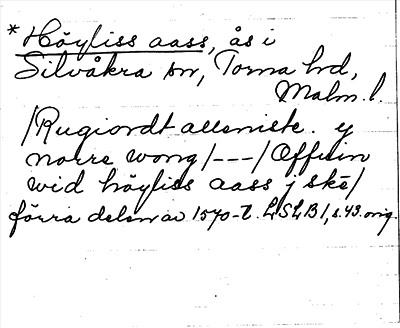 * Höyliss aass, ås i
Silvåkra sn, Torna hd,
Malm. l.
/Rugiordt alleniste. y
norre wong/---/Offuin
wid höyliss aass j skē/
förra delen av 1570-t. LSLB1, s.43. orig.